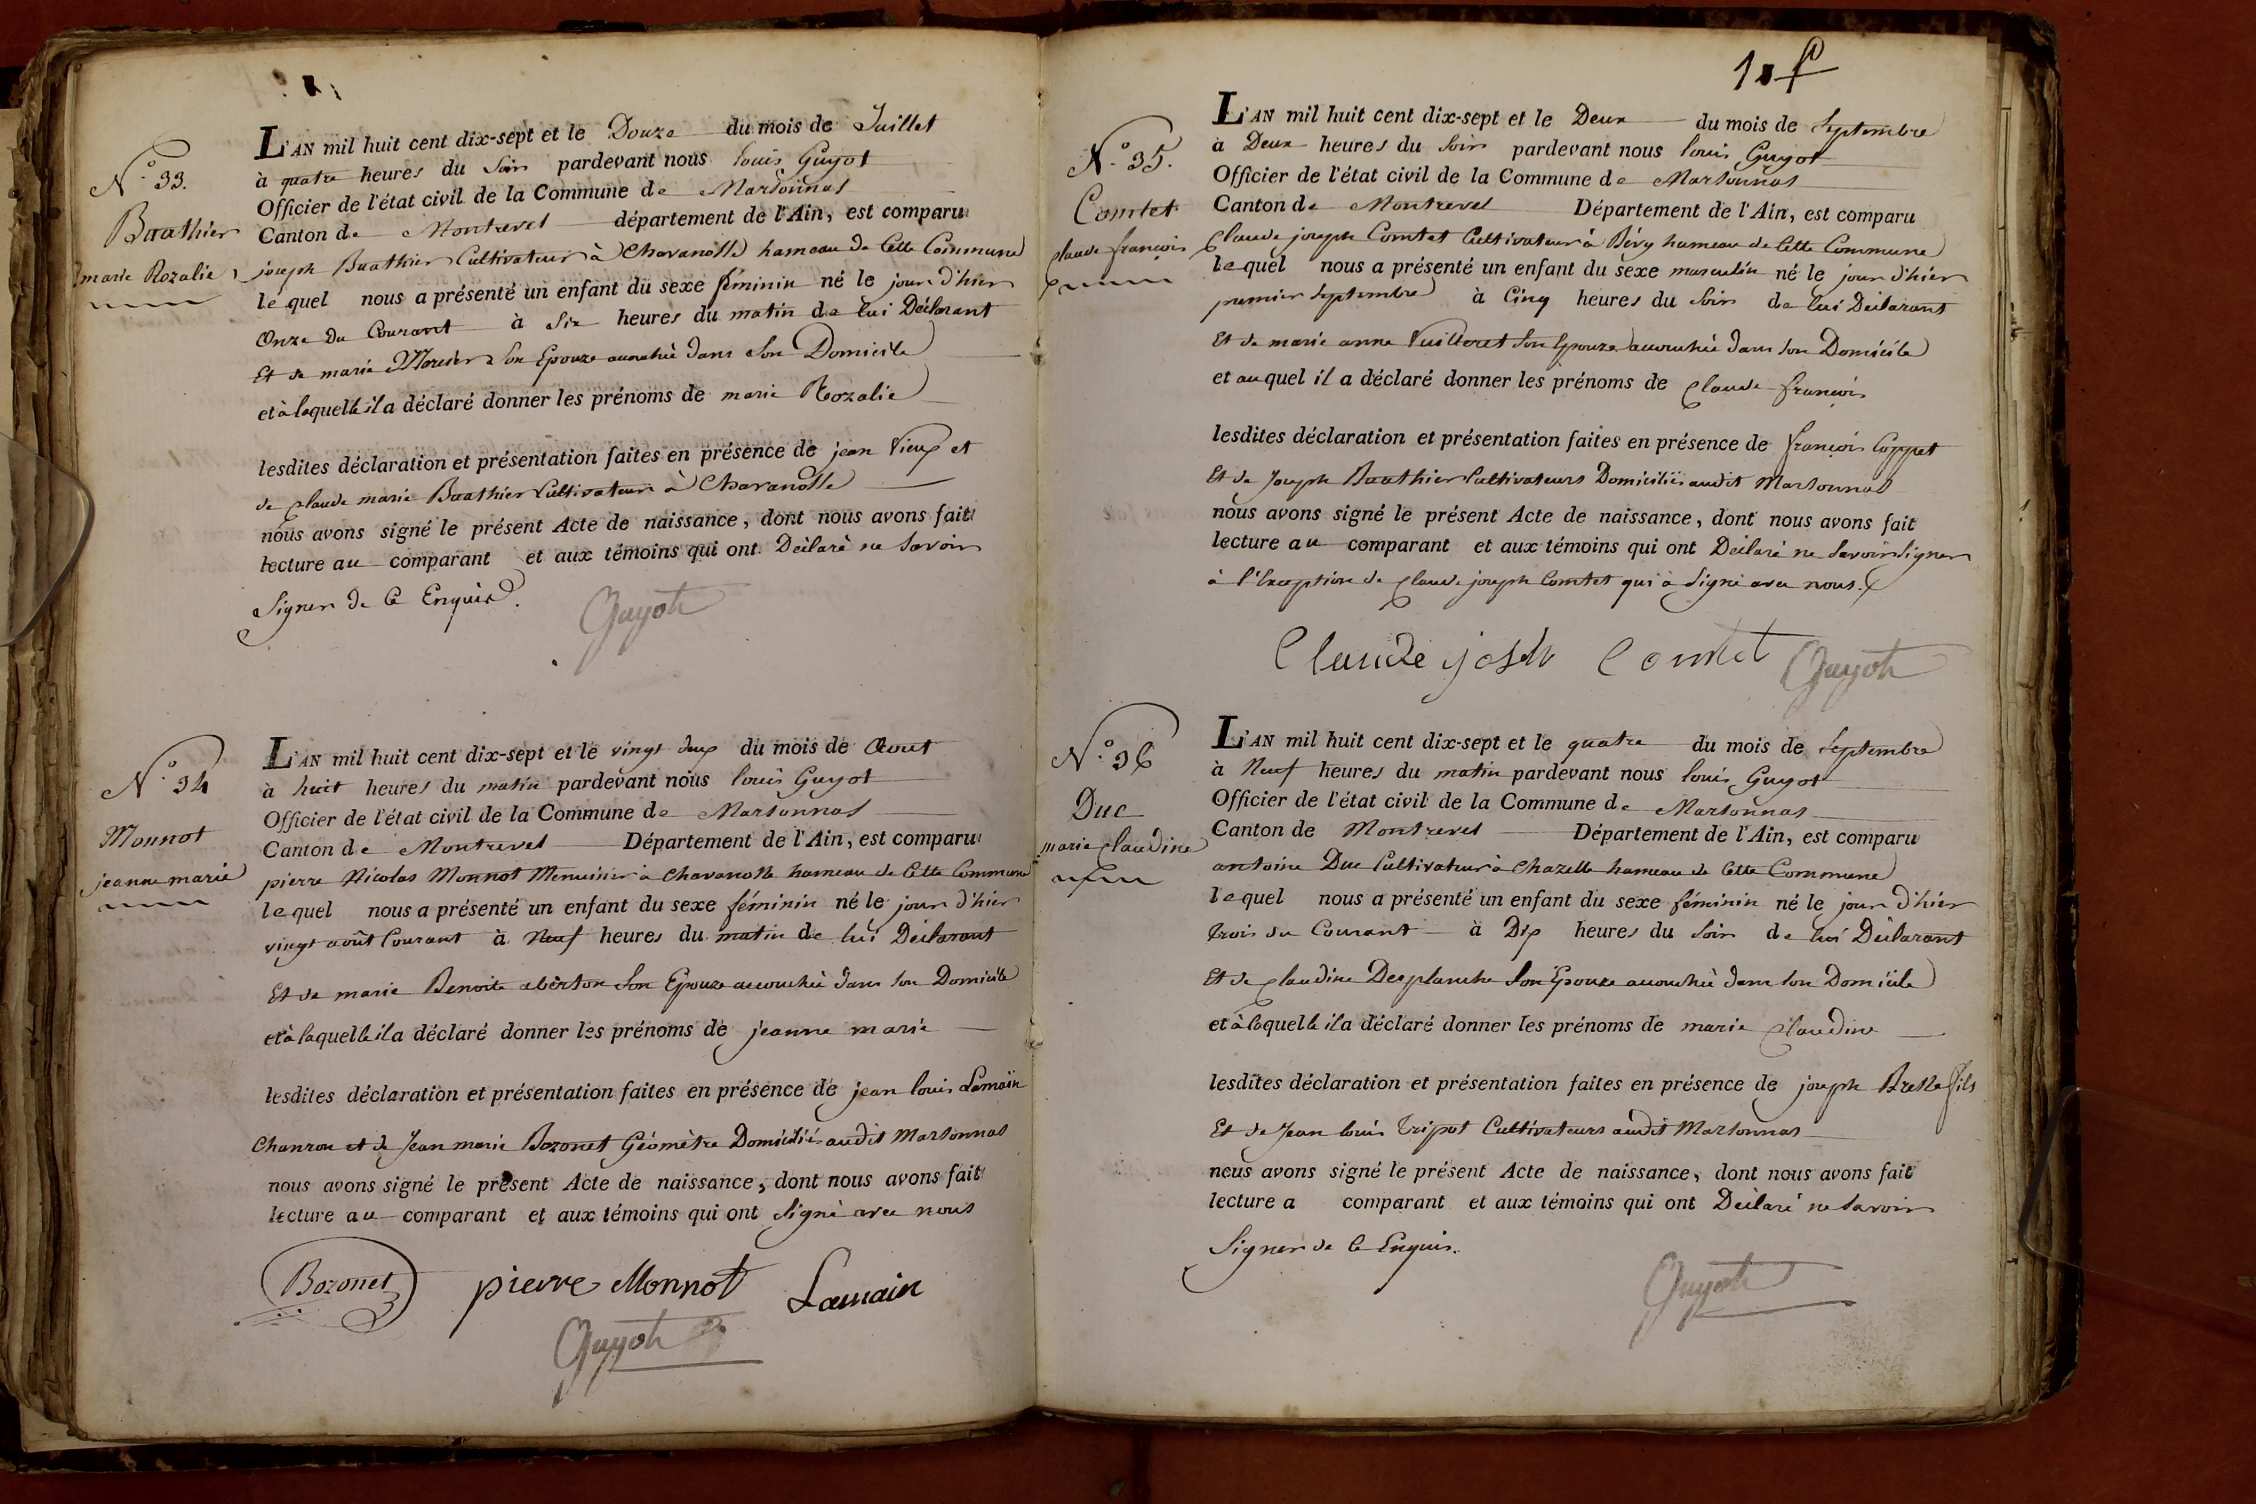 N.° 33.
Buathier
marie Rozalie
L'AN mil huit cent dix-sept et le Douze du mois de Juillet
à quatre heures du Soir pardevant nous louis Guyot
Officier de l'état civil de la Commune de Marsonnas
Canton de Montrevel département de l'Ain, est comparu
joseph Buathier Cultivateur à Chavanosse hameau de Cette Commune
lequel nous a présenté un enfant du sexe féminin né le jour d'hier
Onze du Courant à Six heures du matin de lui Déclarant
Et de marie Mercier Son Epouze accouchée dans Son Domicile
et à laquelle il a déclaré donner les prénoms de marie Rozalie
lesdites déclaration et présentation faites en présence de jean Vieux et
de Claude marie Buathier Cultivateur à Chavanosse
nous avons signé le présent Acte de naissance, dont nous avons fait
lecture au comparant et aux témoins qui ont Déclaré ne Savoir
Signer de Ce Enquis.
Guyot
N.° 34
Monnot
jeanne marie
L'AN mil huit cent dix-sept et le vingt deux du mois de Aout
à huit heures du matin pardevant nous louis Guyot
Officier de l'état civil de la Commune de Marsonnas
Canton de Montrevel Département de l'Ain, est comparu
pierre Nicolas Monnot Menuisier à Chavanosse hameau de Cette Commune
lequel nous a présenté un enfant du sexe féminin né le jour d'hier
vingt août Courant à Neuf heures du matin de lui Déclarant
Et de marie Benoite Son Epouze accouchée dans Son Domicile
et à laquelle il a déclaré donner les prénoms de jeanne marie
lesdites déclaration et présentation faites en présence de jean louis Lamain
et de Jean marie Bozonet Géomètre Domiciliés audit Marsonnas
nous avons signé le présent Acte de naissance, dont nous avons fait
lecture au comparant et aux témoins qui ont Signé avec nous
Bozonet pierre Monnot Lamain
Guyot
N.° 35.
Comtet
Claude françois
L'AN mil huit cent dix-sept et le Deux du mois de Septembre
à Deux heures du Soir pardevant nous louis Guyot
Officier de l'état civil de la Commune de Marsonnas
Canton de Montrevel Département de l'Ain, est comparu
Claude joseph Comtet Cultivateur à Bévy hameau de Cette Commune
lequel nous a présenté un enfant du sexe masculin né le jour d'hier
premier Septembre à Cinq heures du Soir de lui Déclarant
Et de marie anne Vuilloret Son Epouze accouchée dans Son Domicile
et auquel il a déclaré donner les prénoms de Claude françois
lesdites déclaration et présentation faites en présence de françois Coppet
Et de Joseph Buathier Cultivateurs Domiciliés audit Marsonnas
nous avons signé le présent Acte de naissance, dont nous avons fait
lecture au comparant et aux témoins qui ont Déclaré ne Savoir Signer
à l'Exception de Claude joseph Comtet qui à Signé avec nous.
Claude josph Comtet Guyot
N.° 36
Duc
marie Claudine
L'AN mil huit cent dix-sept et le quatre du mois de Septembre
à Neuf heures du matin pardevant nous louis Guyot
Officier de l'état civil de la Commune de Marsonnas
Canton de Montrevel Département de l'Ain, est comparu
antoine Duc Cultivateur à Chazelle hameau de Cette Commune
lequel nous a présenté un enfant du sexe féminin né le jour d'hier
trois du Courant à Dix heures du Soir de lui Déclarant
Et de Claudine Desplanche Son Epouze accouchée dans Son Domicile
et à laquelle il a déclaré donner les prénoms de marie Claudine
lesdites déclaration et présentation faites en présence de joseph fils
Et de Jean louis Tripot Cultivateurs audit Marsonnas
nous avons signé le présent Acte de naissance, dont nous avons fait
lecture a comparant et aux témoins qui ont Déclaré ne Savoir
Signer de Ce Enquis.
Guyot